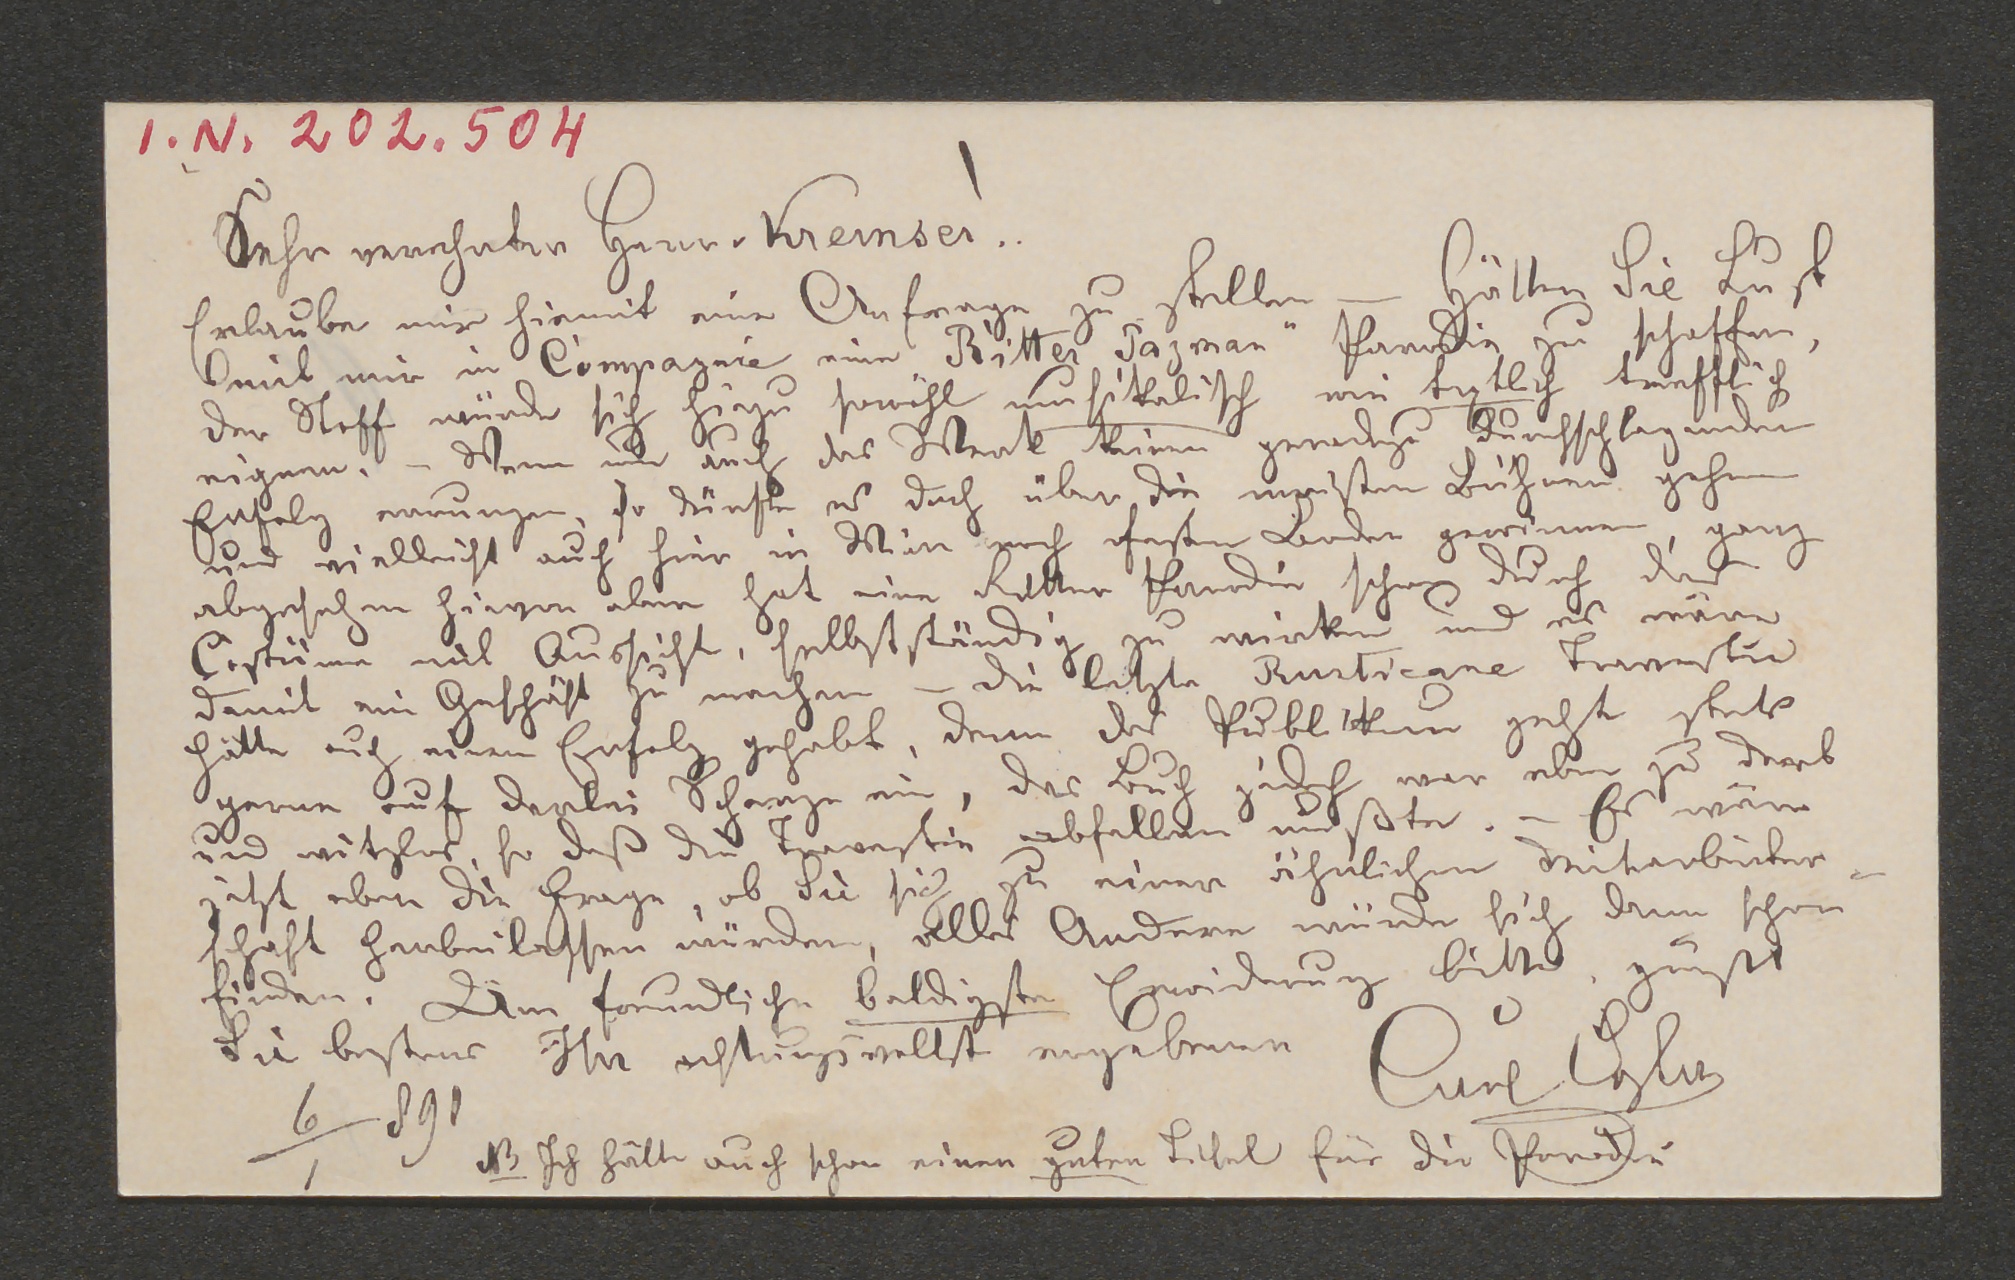 I.N. 202.504
Sehr verehrter Herr Kremser!
Erlaube mir hiemit eine Anfrage zu stellen — Hätten Sie Lust
mit mir in Compagnie eine „Ritter Pazman“ Parodie zu schaffen,
der Stoff würde sich hiezu sowohl musikalisch wie textlich trefflich
eignen. – Wenn nun auch das Werk keinen geradezu durchschlagenden
Erfolg errungen, so dürfte es doch über die meisten Bühnen gehen
und vielleicht auch hier in Wien noch festen Boden gewinnen, ganz
abgesehen hievon aber hat eine Ritter Parodie schon durch das
Costüme viel Aussicht, selbstständig zu wirken und es wäre
damit ein Geschäft zu machen – die letzte Rusticane Travestie
hätte auch einen Erfolg gehabt, denn das Publikum geht stets
gerne auf derlei Scherze ein, das Buch jedoch war aber zu derb
und witzlos, so daß die Travestie abfallen mußte. – Es wäre
jetzt eben die Frage, ob Sie sich zu einer ähnlichen Mitarbeiter-
schaft herbeilassen würden, alles Andere würde sich dann schon
finden. Um freundliche baldigste Erwiderung bittet, grüßt
Sie bestens Ihr achtungsvollst ergebener
Carl
6/1 891
NB Ich hätte auch schon einen guten Titel für die Parodie